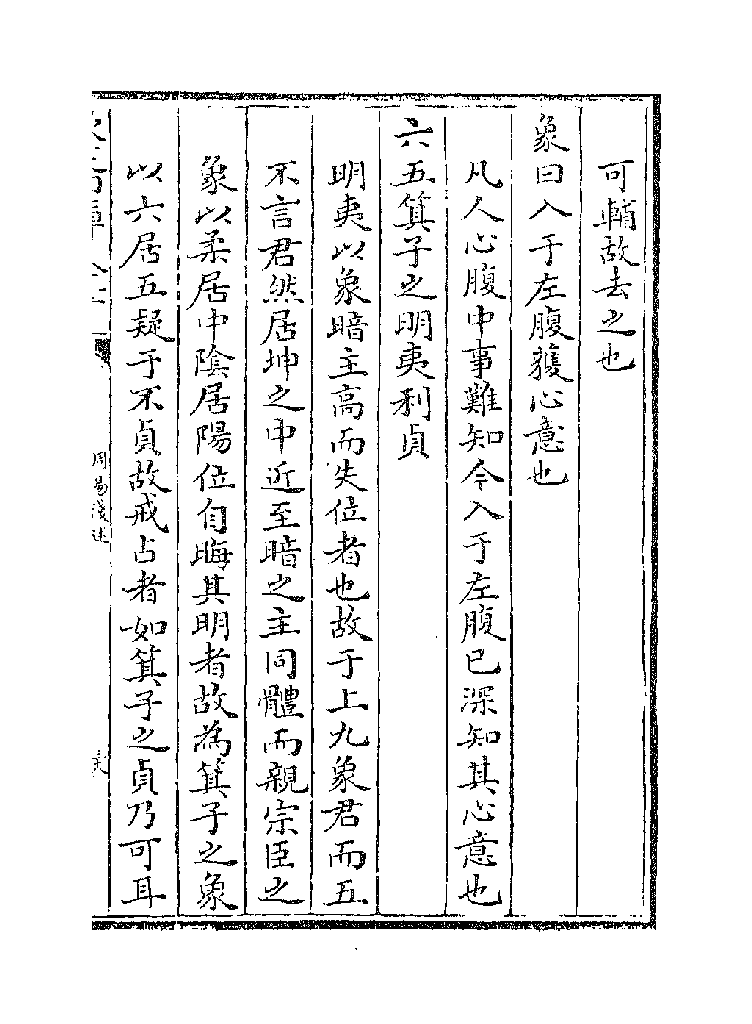 可輔故去之也
象曰入于左腹獲心意也
凡人心腹中事難知今入于左腹已深知其心意也
六五箕子之明夷利貞
明夷以象暗主高而失位者也故于上九象君而五
不言君然居坤之中近至暗之主同體而親宗臣之
象以柔居中陰居陽位自晦其明者故為箕子之象
以六居五疑于不貞故戒占者如箕子之貞乃可耳
周易淺述